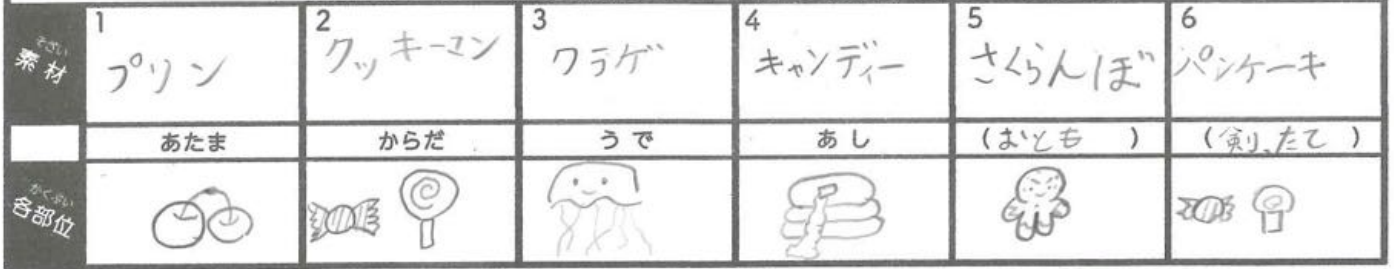 1 2 3 4 5 6
そざい
素材
プリン クッキーマン クラゲ キャンディー さくらんぼ パンケーキ
あたま からだ うで あし (おとも) (剣、たて)
かくぶい
各部位